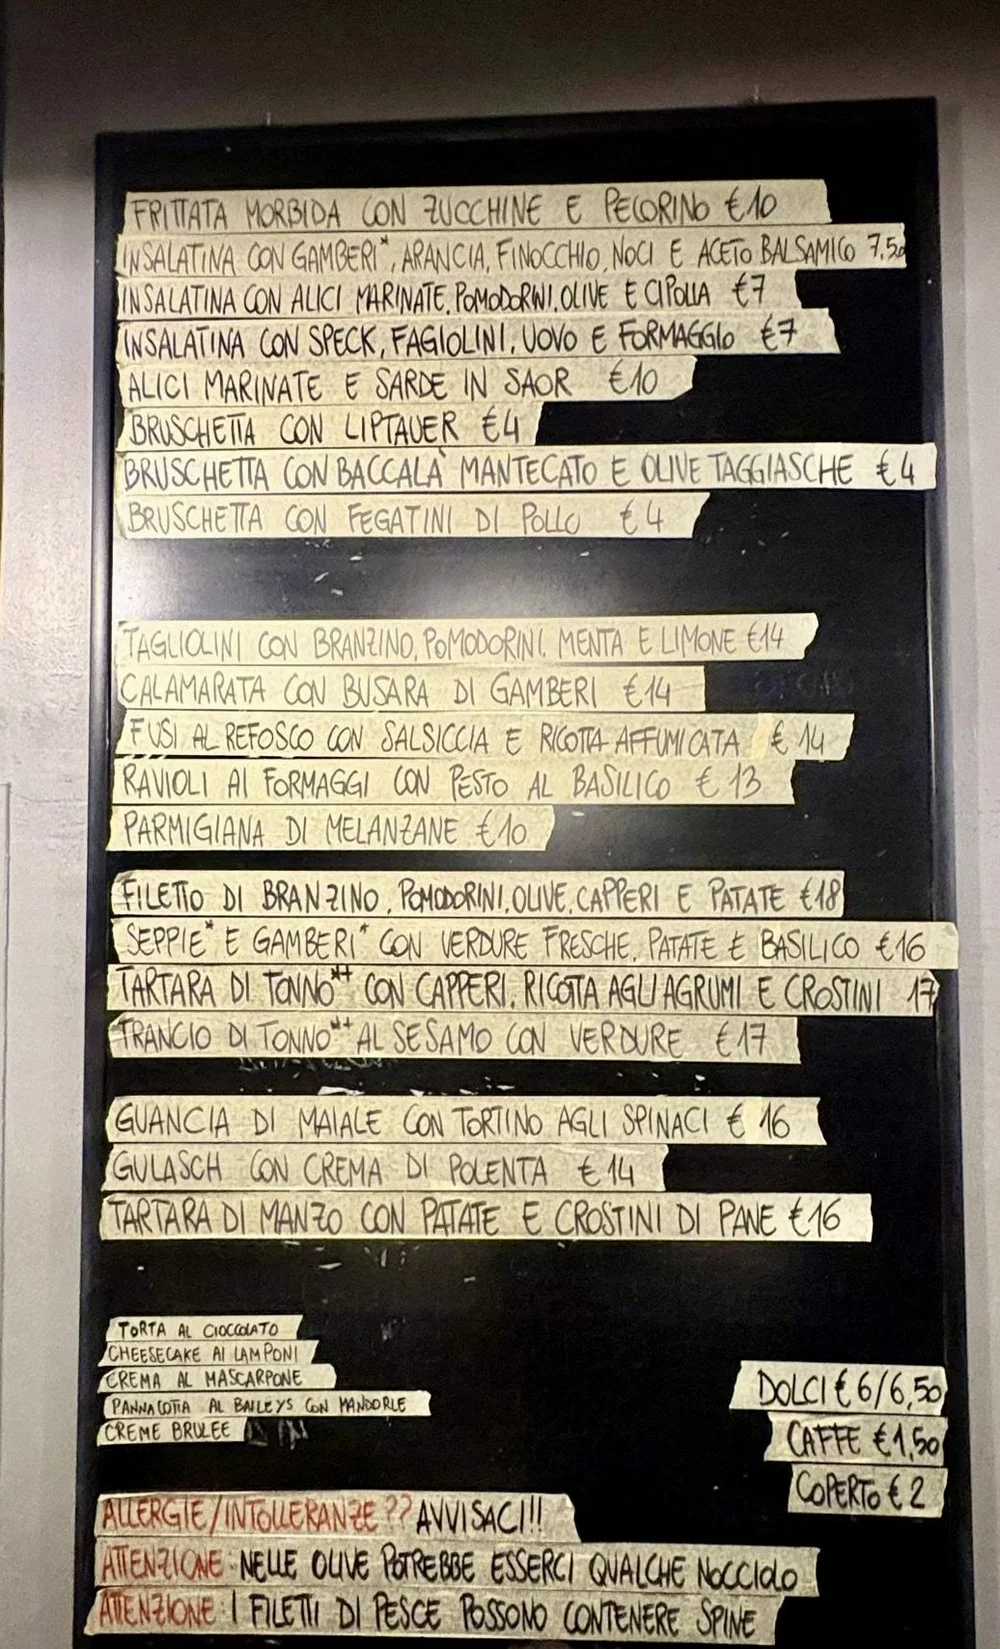 FRITTATA MORBIDA CON ZUCCHINE E PECORINO €10
INSALATINA CON GAMBERI*, ARANCIA, FINOCCHIO, NOCI E ACETO BALSAMICO 7,50
INSALATINA CON ALICI MARINATE, POMODORINI, OLIVE E CIPOLLA €7
INSALATINA CON SPECK, FAGIOLINI, UOVO E FORMAGGIO €7
ALICI MARINATE E SARDE IN SAOR €10
BRUSCHETTA CON LIPTAUER €4
BRUSCHETTA CON BACCALÀ MANTECATO E OLIVE TAGGIASCHE €4
BRUSCHETTA CON FEGATINI DI POLLO €4
TAGLIOLINI CON BRANZINO, POMODORINI, MENTA E LIMONE €14
CALAMARATA CON BUSARA DI GAMBERI €14
FUSI AL REFOSCO CON SALSICCIA E RICOTTA AFFUMICATA €14
RAVIOLI AI FORMAGGI CON PESTO AL BASILICO €13
PARMIGIANA DI MELANZANE €10
FILETTO DI BRANZINO, POMODORINI, OLIVE, CAPPERI E PATATE €18
SEPPIE* E GAMBERI* CON VERDURE FRESCHE, PATATE E BASILICO €16
TARTARA DI TONNO** CON CAPPERI, RICOTTA AGLI AGRUMI E CROSTINI 17
TRANCIO DI TONNO** AL SESAMO CON VERDURE €17
GUANCIA DI MAIALE CON TORTINO AGLI SPINACI €16
GULASCH CON CREMA DI POLENTA €14
TARTARA DI MANZO CON PATATE E CROSTINI DI PANE €16
TORTA AL CIOCCOLATO
CHEESECAKE AI LAMPONI
CREMA AL MASCARPONE
PANNACOTTA AL BAILEYS CON MANDORLE
CREME BRULEE
DOLCI €6/6,50
CAFFE €1,50
COPERTO €2
ALLERGIE/INTOLLERANZE?? AVVISACI!!
ATTENZIONE: NELLE OLIVE POTREBBE ESSERCI QUALCHE NOCCIOLO
ATTENZIONE: I FILETTI DI PESCE POSSONO CONTENERE SPINE